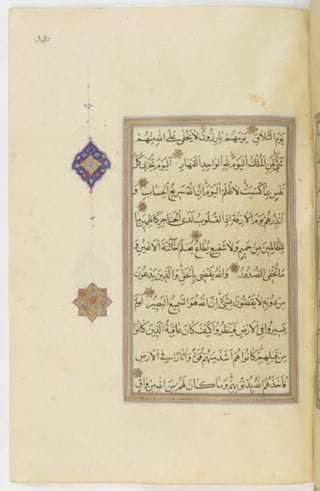 يَوْمَ التَّلَاقِ يَوْمَ هُمْ بَارِزُونَ لَا يَخْفَى عَلَى اللَّهِ مِنْهُمْ
شَيْءٌ لِمَنِ الْمُلْكُ الْيَوْمَ لِلَّهِ الْوَاحِدِ الْقَهَّارِ الْيَوْمَ تُجْزَى كُلُّ
نَفْسٍ بِمَا كَسَبَتْ لَا ظُلْمَ الْيَوْمَ إِنَّ اللَّهَ سَرِيعُ الْحِسَابِ وَ
أَنْذِرْهُمْ يَوْمَ الْآزِفَةِ إِذِ الْقُلُوبُ لَدَى الْحَنَاجِرِ كَاظِمِينَ مَا
لِلظَّالِمِينَ مِنْ حَمِيمٍ وَلَا شَفِيعٍ يُطَاعُ يَعْلَمُ خَائِنَةَ الْأَعْيُنِ وَ
مَا تُخْفِي الصُّدُورُ وَاللَّهُ يَقْضِي بِالْحَقِّ وَالَّذِينَ يَدْعُونَ
مِنْ دُونِهِ لَا يَقْضُونَ بِشَيْءٍ إِنَّ اللَّهَ هُوَ السَّمِيعُ الْبَصِيرُ أَوَلَمْ
يَسِيرُوا فِي الْأَرْضِ فَيَنْظُرُوا كَيْفَ كَانَ عَاقِبَةُ الَّذِينَ كَانُوا
مِنْ قَبْلِهِمْ كَانُوا هُمْ أَشَدَّ مِنْهُمْ قُوَّةً وَآثَارًا فِي الْأَرْضِ
فَأَخَذَهُمُ اللَّهُ بِذُنُوبِهِمْ وَمَا كَانَ لَهُمْ مِنَ اللَّهِ مِنْ وَاقٍ